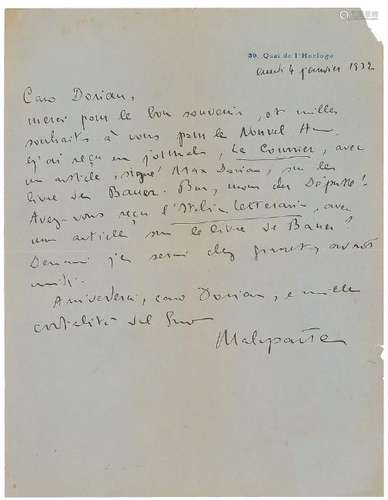 39, Quai de l'Horloge
lundi 4 janvier 1932
Caro Dorian,
merci pour le bon souvenir, et milles
souhaits à vous pour le Nouvel An.
J'ai reçu un journal, Le Courrier, avec
un article, signé Max Dorian, sur le
livre de Bauer.
Avez-vous reçu l'Italia Letteraria, avec
un article sur le livre de Bauer?
Demain je serai chez Grasset, après
midi.
Arrivederci, caro Dorian, e mille
cordialità dal Suo
Malaparte